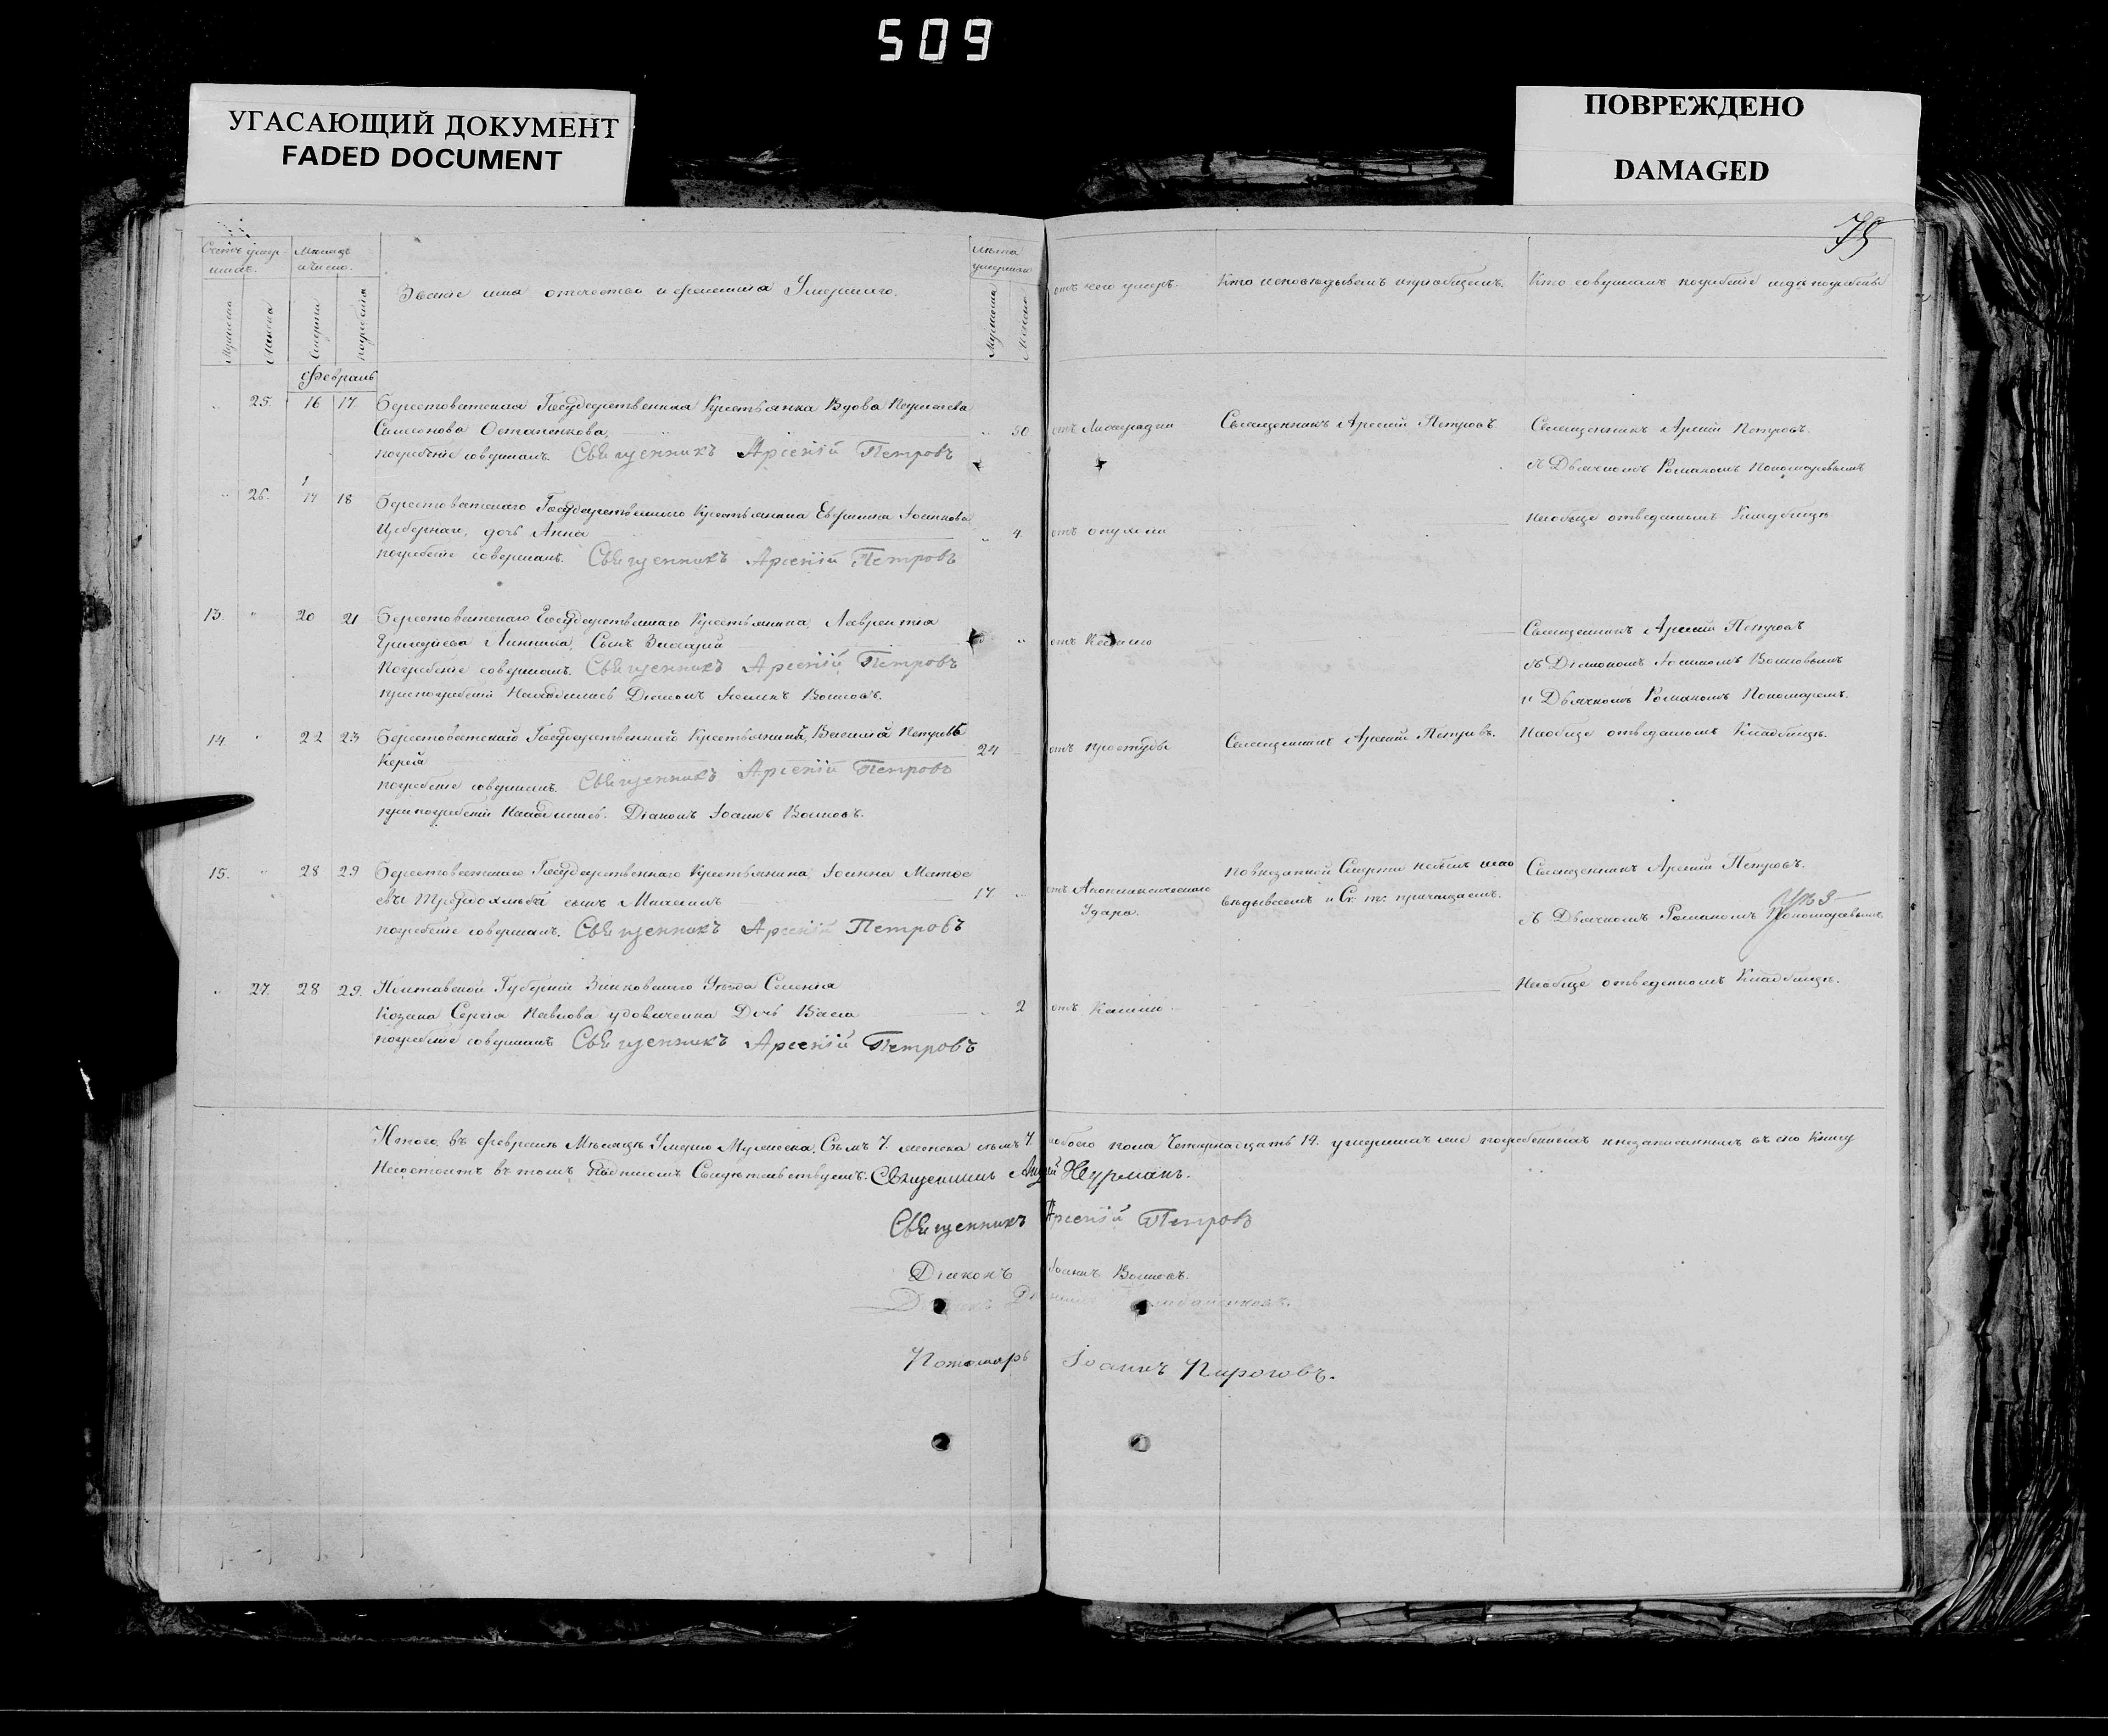 509
УГАСАЮЩИЙ ДОКУМЕНТ
FADED DOCUMENT
ПОВРЕЖДЕНО
DAMAGED
79
Счетъ умер-
шихъ.
Мѣсяцъ
и число.
Званіе имя отечество и фамилія Умершаго.
Лѣта
умершаго
отъ чего умеръ.
Кто исповѣдывалъ и пріобщалъ.
Кто совершалъ погребеніе и гдѣ погребены
Мужеска
Женска
Смерти
погребенія
Мужеска
Женска
Февраль
25. 16 17. Берестоватская Государственная Крестьянка Вдова
Симеонова Остапенкова 50 отъ Лихорадки Священникъ Арсеній Петровъ Священникъ Арсеній Петровъ.
погребеніе совершалъ. Священникъ Арсеній Петровъ
съ Дьячкомъ Романомъ Пономаревымъ
26. 17 18 Берестоватскаго Государственнаго Крестьянина
дочь Анна 4. отъ опухоли
На обще отведенномъ Кладбищѣ
погребеніе совершалъ. Священникъ Арсеній Петровъ
13. 20 21 Берестоватскаго Государственнаго Крестьянина, Лаврентія
Григорьева Линника, Сынъ Захарій отъ Кашлю
Священникъ Арсеній Петровъ
Погребеніе совершалъ. Священникъ Арсеній Петровъ
съ Діакономъ Іоанномъ Волковымъ
при погребеніи Находились Діаконъ Іоаннъ Волковъ.
и Дьячкомъ Романомъ Пономаремъ.
14. 22 23 Берестоватский Государственный Крестьянинъ, Василій Петровъ
24 отъ простуды Священникъ Арсеній Петровъ. На обще отведенномъ Кладбищѣ.
погребеніе совершалъ. Священникъ Арсеній Петровъ
при погребеніи Находились. Діаконъ Іоаннъ Волковъ.
15. 28 29 Берестоватскаго Государственнаго Крестьянина Іоанна Матве
ева Твердохлѣба сынъ Михаилъ 17 отъ Апоплексическаго
Удара.
По внезапной Смерти небылъ испо
вѣдываемъ и Св. т. причащаемъ.
Священникъ Арсеній Петровъ.
съ Дьячкомъ Романомъ Пономаревымъ
погребеніе совершалъ. Священникъ Арсеній Петровъ
27. 28 29. Полтавской Губерніи Зинковскаго Уѣзда Селенія
Козака Сергія Павлова Удовиченка Дочь 2 отъ Кашлю
На обще отведенномъ Кладбищѣ.
погребеніе совершалъ Священникъ Арсеній Петровъ
Итого, въ февралѣ Мѣсяцѣ Умерло Мужеска, Семь 7. женска семь 7. обоего пола Четырнадцать 14. умершихъ не погребенныхъ и незаписанныхъ въ сію Книгу
Несостоитъ въ томъ подписомъ Свидѣтельствуемъ. Священникъ
Священникъ Арсеній Петровъ
Діаконъ Іоаннъ Волковъ.
Пономарь Іоаннъ Пироговъ.